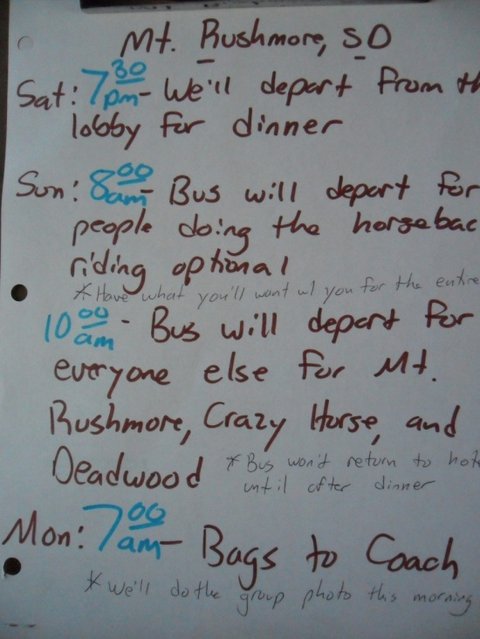 Mt. Rushmore, SD
Sat: 7 30 pm - We'll depart from th
lobby for dinner
Sun: 8 00 am - Bus will depart for
people doing the horsebac
riding optional
* Have what you'll want w/ you for the entire
10 00 am - Bus will depart for
everyone else for Mt.
Rushmore, Crazy Horse, and
Deadwood * Bus won't return to hote
until after dinner
Mon: 7 00 am - Bags to Coach
* We'll do the group photo this morning